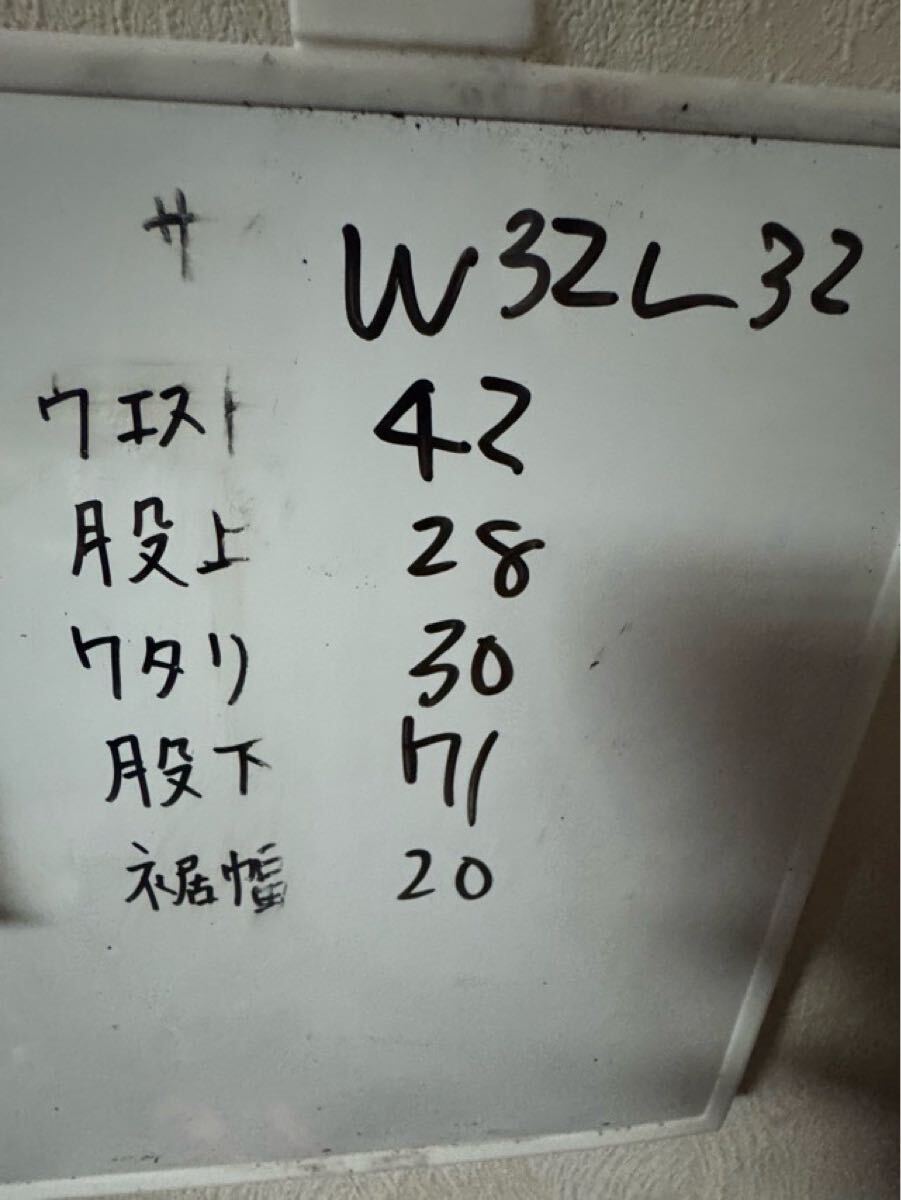 サ W32L32
ウエスト 42
股上 28
ワタリ 30
股下 71
裾幅 20